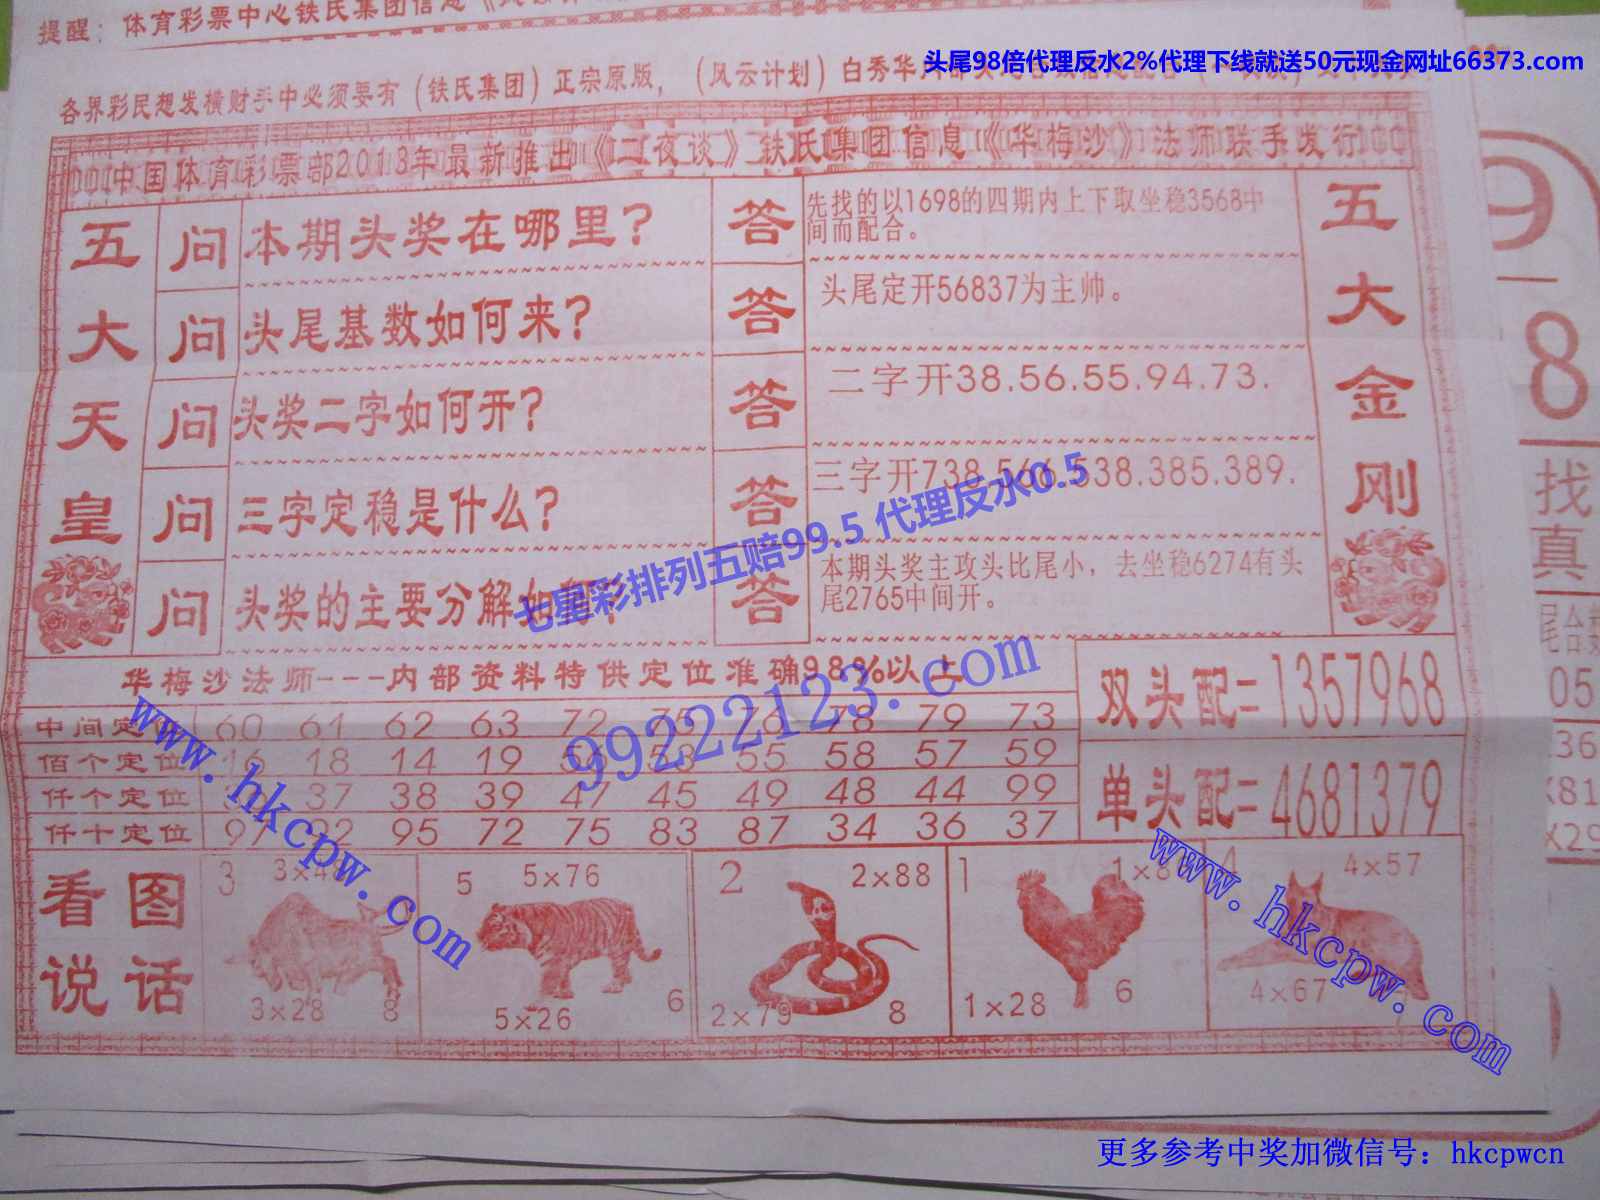 提醒：体育彩票中心铁氏集团信息
头尾98倍代理反水2%代理下线就送50元现金网址66373.com
各界彩民想发横财手中必须要有（铁氏集团）正宗原版，（风云计划）白秀华
中国体育彩票部2013年最新推出《二夜谈》铁氏集团信息《华梅沙》法师联手发行
五大天皇
问 本期头奖在哪里？
答 先找的以1698的四期内上下取坐稳3568中
间而配合。
问 头尾基数如何来？
答 头尾定开56837为主帅。
问 头奖二字如何开？
答 二字开38.56.55.94.73.
问 三字定稳是什么？
答 三字开738.566.538.385.389.
问 头奖的主要分解如
答 本期头奖主攻头比尾小，去坐稳6274有头
尾2765中间开。
五大金刚
七星彩排列五赔99.5 代理反水0.5
华梅沙法师---内部资料特供定位准确98%以上
99222123.com
中间定位 60 61 62 63 72 75 76 78 79 73
佰个定位 16 18 14 19 56 53 55 58 57 59
仟个定位 37 38 39 47 45 49 48 44 99
仟十定位 97 92 95 72 75 83 87 34 36 37
双头配=1357968
单头配=4681379
www.hkcpw.com
www.hkcpw.com
看图
说话
3 3×48
3×28 8
5 5×76
5×26 6
2 2×88
2×79 8
1 1×8
1×28 6
4 4×57
4×67
9
8
找
真
05
36
X81
X29
更多参考中奖加微信号：hkcpwcn